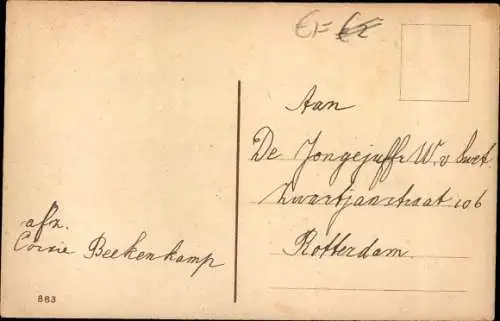 Aan
De Jongejuffr. W. v Swet.
Zwartjanstraat 106
Rotterdam.
afz.
Corrie Beekenkamp
863